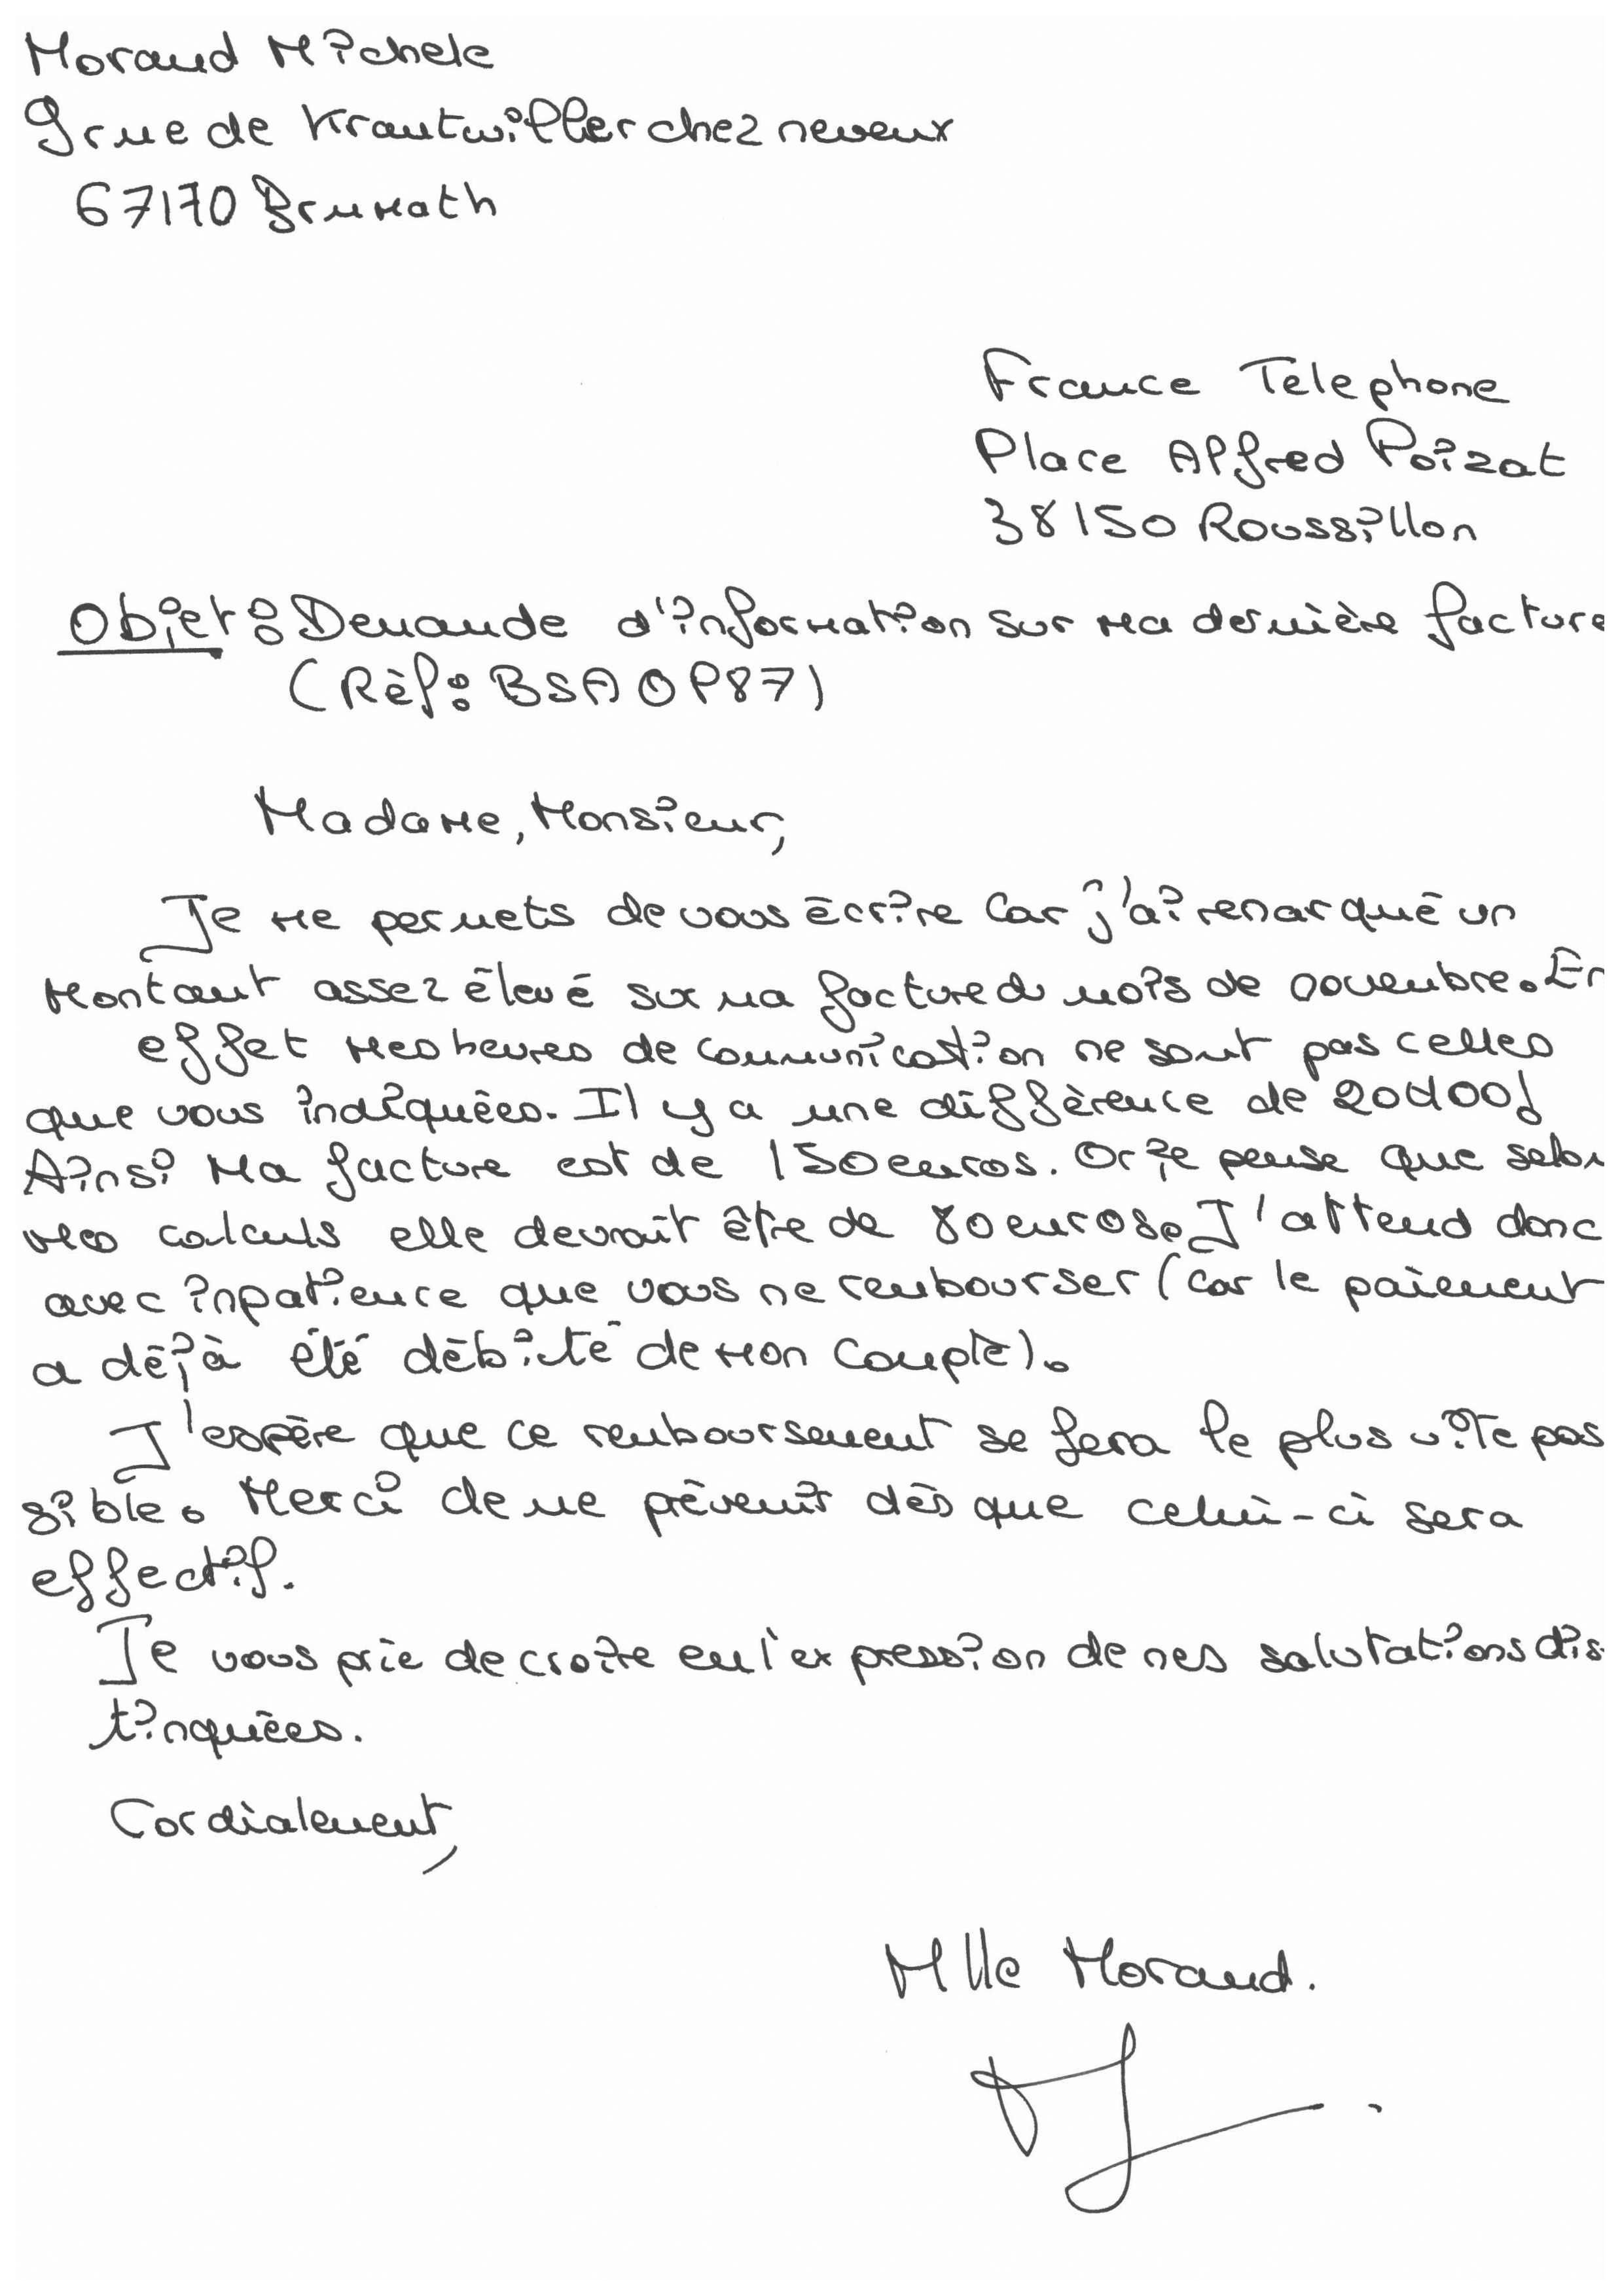 Moraud Michele
9 rue de Krautwiller chez neveux
67170 Brumath
France Telephone
Place Alfred Poizat
38150 Roussillon
Objet : Demande d'information sur ma dernière facture
(Réf : BSAOP87)
Madame, Monsieur,
Je me permets de vous écrire car j'ai remarqué un
montant assez élevé sur ma facture du mois de novembre. En
effet mes heures de communication ne sont pas celles
que vous indiquées. Il y a une différence de 20H00!
Ainsi ma facture est de 150 euros. Or je pense que selon
mes calculs elle devrait être de 80 euros. J'attend donc
avec inpatience que vous me rembourser (car le paiement
a déjà été débité de mon compte).
J'espère que ce remboursement se fera le plus vite pos
sible. Merci de me prévenir dès que celui-ci sera
effectif.
Je vous prie de croire en l'expression de mes salutations dis
tinquées.
Cordialement,
Mlle Moraud.